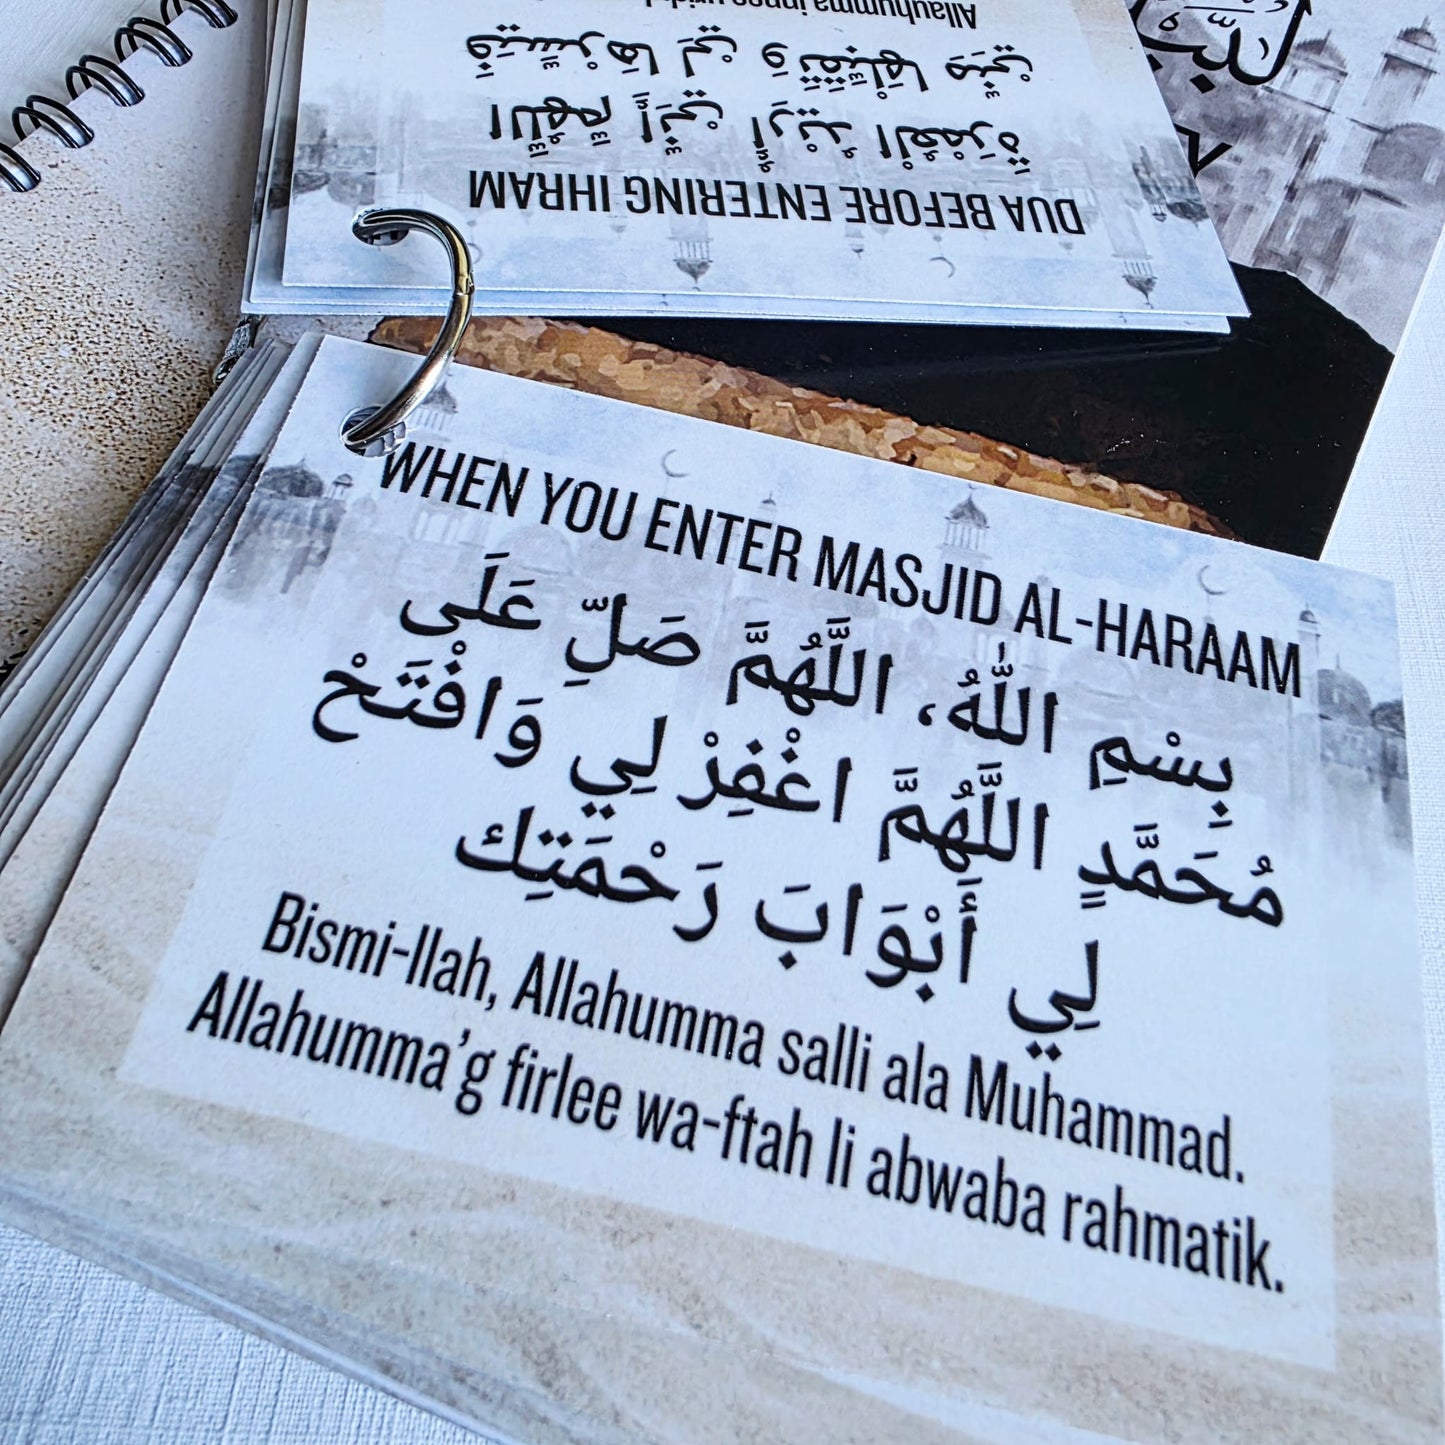 Allauhumma innee
مِنِّيْ وَتَقَبَّلْهَا لِيْ فَيَسِّرْهَا
اللَّهُمَّ إِنِّيْ أُرِيْدُ الْعُمْرَةَ
DUA BEFORE ENTERING IHRAM
WHEN YOU ENTER MASJID AL-HARAAM
بِسْمِ اللَّهُ، اللَّهُمَّ صَلِّ عَلَى
مُحَمَّدٍ اللَّهُمَّ اغْفِرْ لِي وَافْتَحْ
لِي أَبْوَابَ رَحْمَتِك
Bismi-llah, Allahumma salli ala Muhammad.
Allahumma'g firlee wa-ftah li abwaba rahmatik.